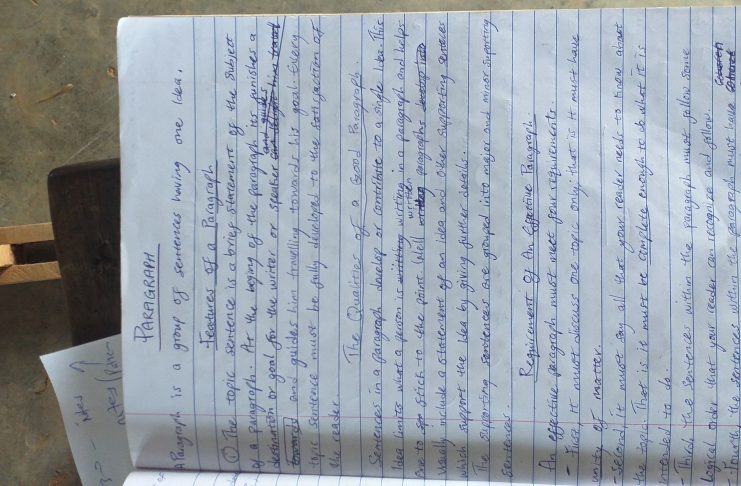 PARAGRAPH
A Paragraph is a group of sentences having one idea.
Features of a Paragraph
① The topic sentence is a brief statement of the subject
of a paragraph. At the beging of the paragraph its funishes a
destination or goal for the writer or speaker and guides
and guides him travelling towards his goal. Every
topic sentence must be fully developed to the satisfaction of
the reader.
The Qualities of a Good Paragraph.
Sentences in a paragraph develop or contribute to a single idea. This
idea limits what a person is writing in a paragraph and helps
one to stick to the point. Well written paragraphs
usually include a statement of an idea and other supporting sentences
which support the idea by giving further details.
The supporting sentences are grouped into major and minor supporting
sentences.
Requirement Of An Effective Paragraph.
An effective paragraph must meet four requirements.
- That it must discuss one topic only, that is it must have
unity of matter.
- second, it must say all that your reader needs to know about
the topic. That is it must be complete enough to do what it is
intended to do.
- Third the sentences within the paragraph must follow some
logical order that your reader can recognize and follow.
- Fourth, the sentences within the paragraph must have